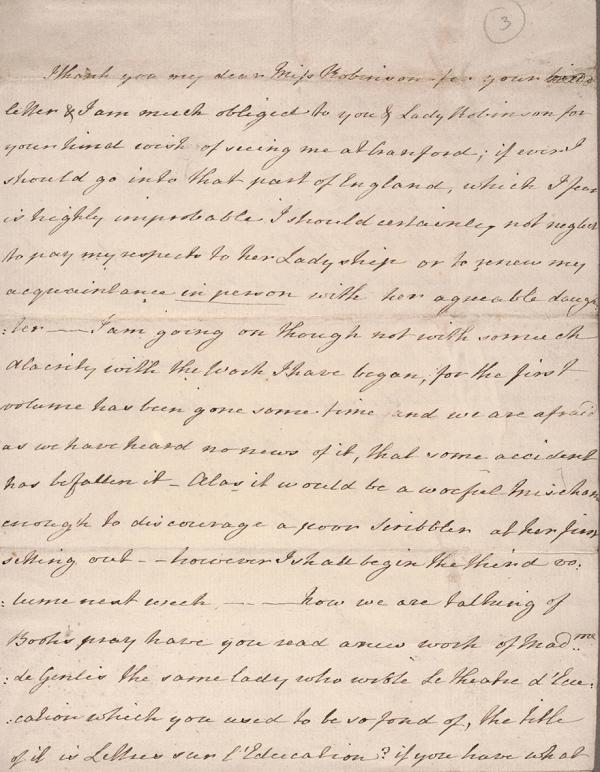 3
I thank you my dear Miss Robinson for your kind
letter & I am much obliged to you & Lady Robinson for
your kind wish of seeing me at Cranford; if ever I
should go into that part of England, which I fear
is highly improbable I should certainly not neglect
to pay my respects to her Ladyship or to renew my
acquaintance in person with her agreable daugh
:ter —— I am going on though not with so much
alacrity with the Work I have began, for the first
volume has been gone some time and we are afraid
as we have heard no news of it, that some accident
has befallen it - Alas it would be a woeful mischan
enough to discourage a poor Scribbler at her first
setting out - - however I shall begin the third vo:
:lume next week - - —— now we are talking of
Books pray have you read a new work of Mad.me
:de Genlis the same lady who wrote Le Theatre d'Edu:
:cation which you used to be so fond of, the title
of it is Lettres sur l'Education? if you have what